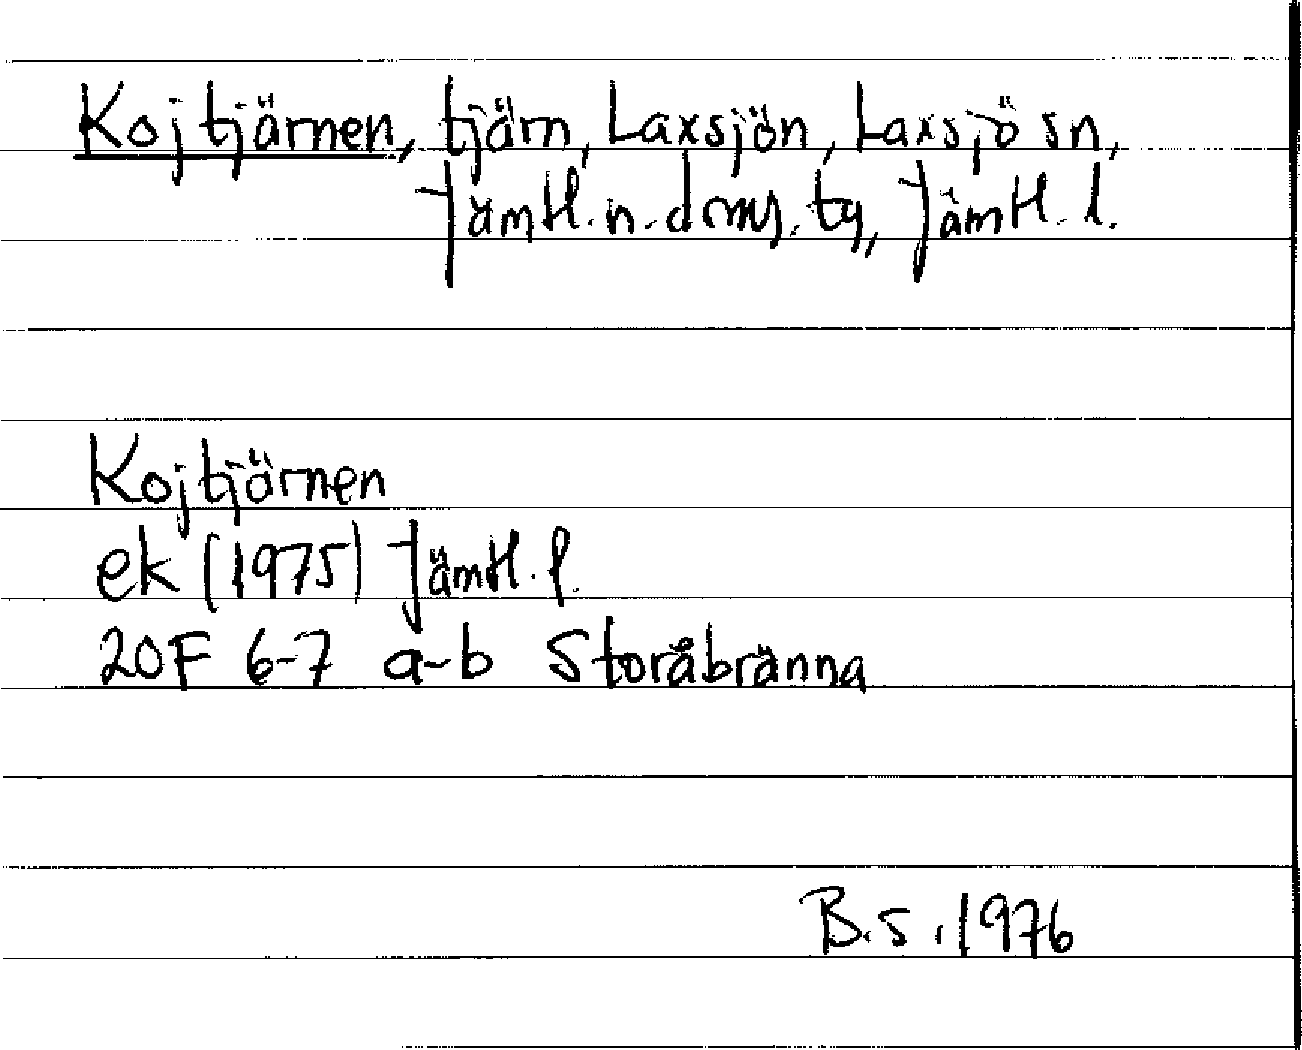 Kojtjärnen, tjärn, Laxsjön, Laxsjö sn,
Jämtl. n. doms. tg, Jämtl. l.
Kojtjärnen
ek (1975) Jämtl. l.
20F 6-7 a-b Storåbränna
B.S. 1976